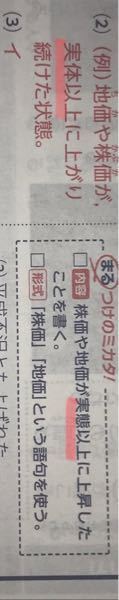 (2)(例)地価や株価が,
実体以上に上がり
続けた状態。
(3)イ
まるつけのミカタ!
□内容 株価や地価が実態以上に上昇した
ことを書く。
□形式「株価」「地価」という語句を使う。